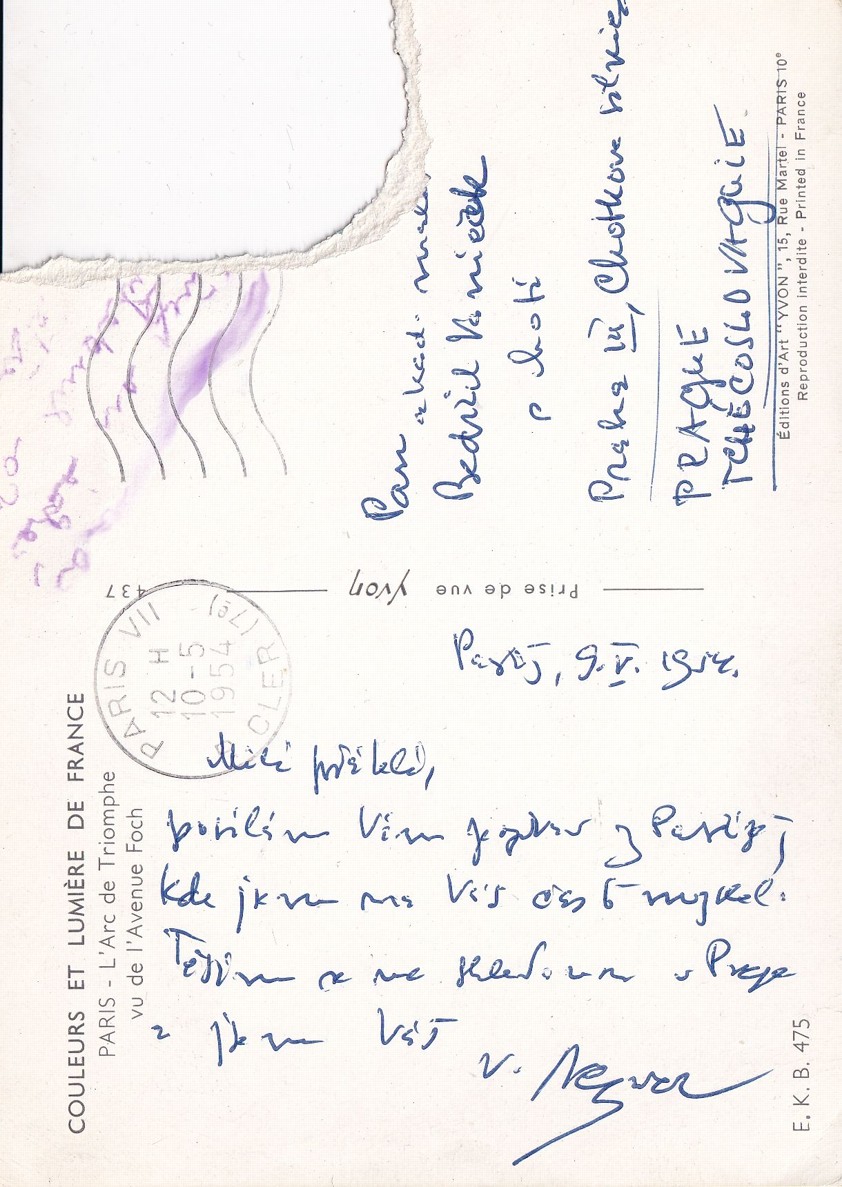 COULEURS ET LUMIÈRE DE FRANCE
PARIS - L'Arc de Triomphe
vu de l'Avenue Foch
PARIS VII
12 H
10-5
1954
CLER (7e)
437
Prise de vue Yvon
Paříž, 9.V. 1954.
Milí přátelé,
posílám Vám pozdrav z Paříže,
kde jsem na Vás často myslel.
Těším se na shledanou v Praze
a jsem Váš
V.
Pan akad.
Bedřich Vaníček
s chotí
Praha III, Chotkova silnice
PRAGUE
TCHÉCOSLOVAQUIE
Éditions d'Art "YVON", 15, Rue Martel - PARIS 10e
Reproduction interdite - Printed in France
E. K. B. 475